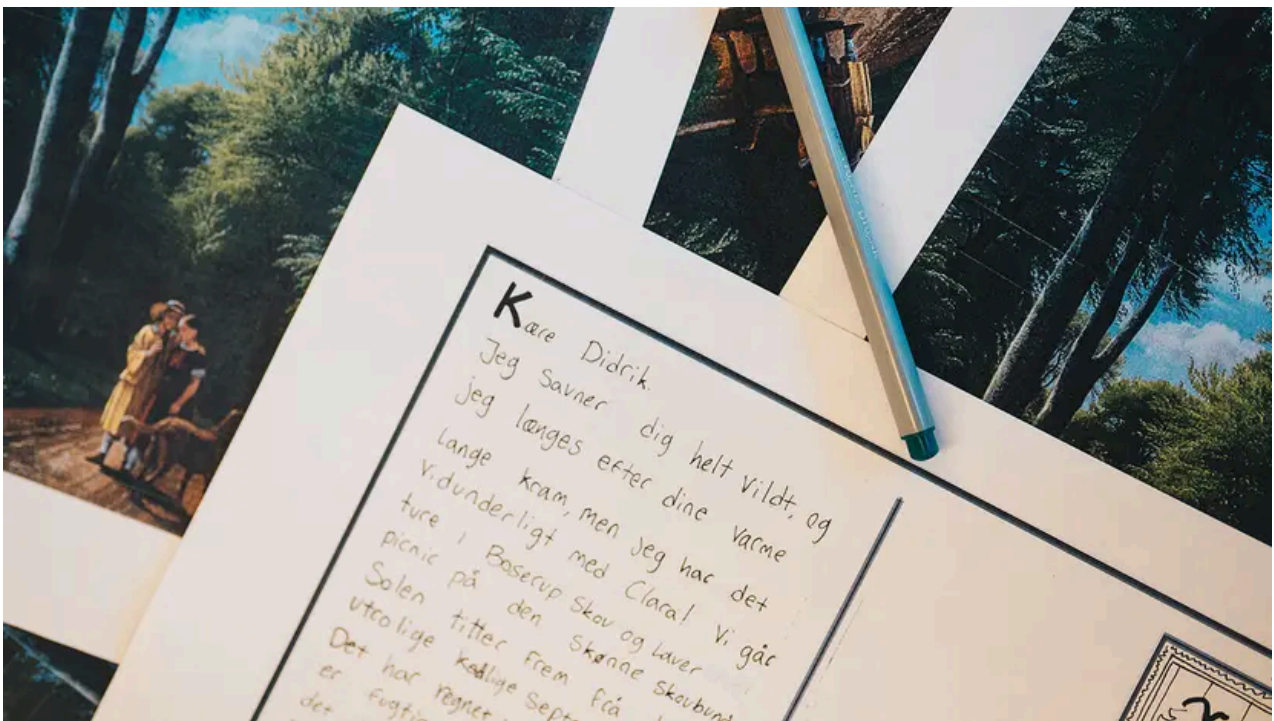 Kære Didrik.
Jeg savner dig helt vildt, og
jeg længes efter dine varme
lange kram, men jeg har det
vidunderligt med Clara! Vi går
ture i Boserup Skov og laver
picnic på den skønne skovbund
Solen titter frem fra
utrolige kedlige Sept
Det har regnet
er fugtig
det